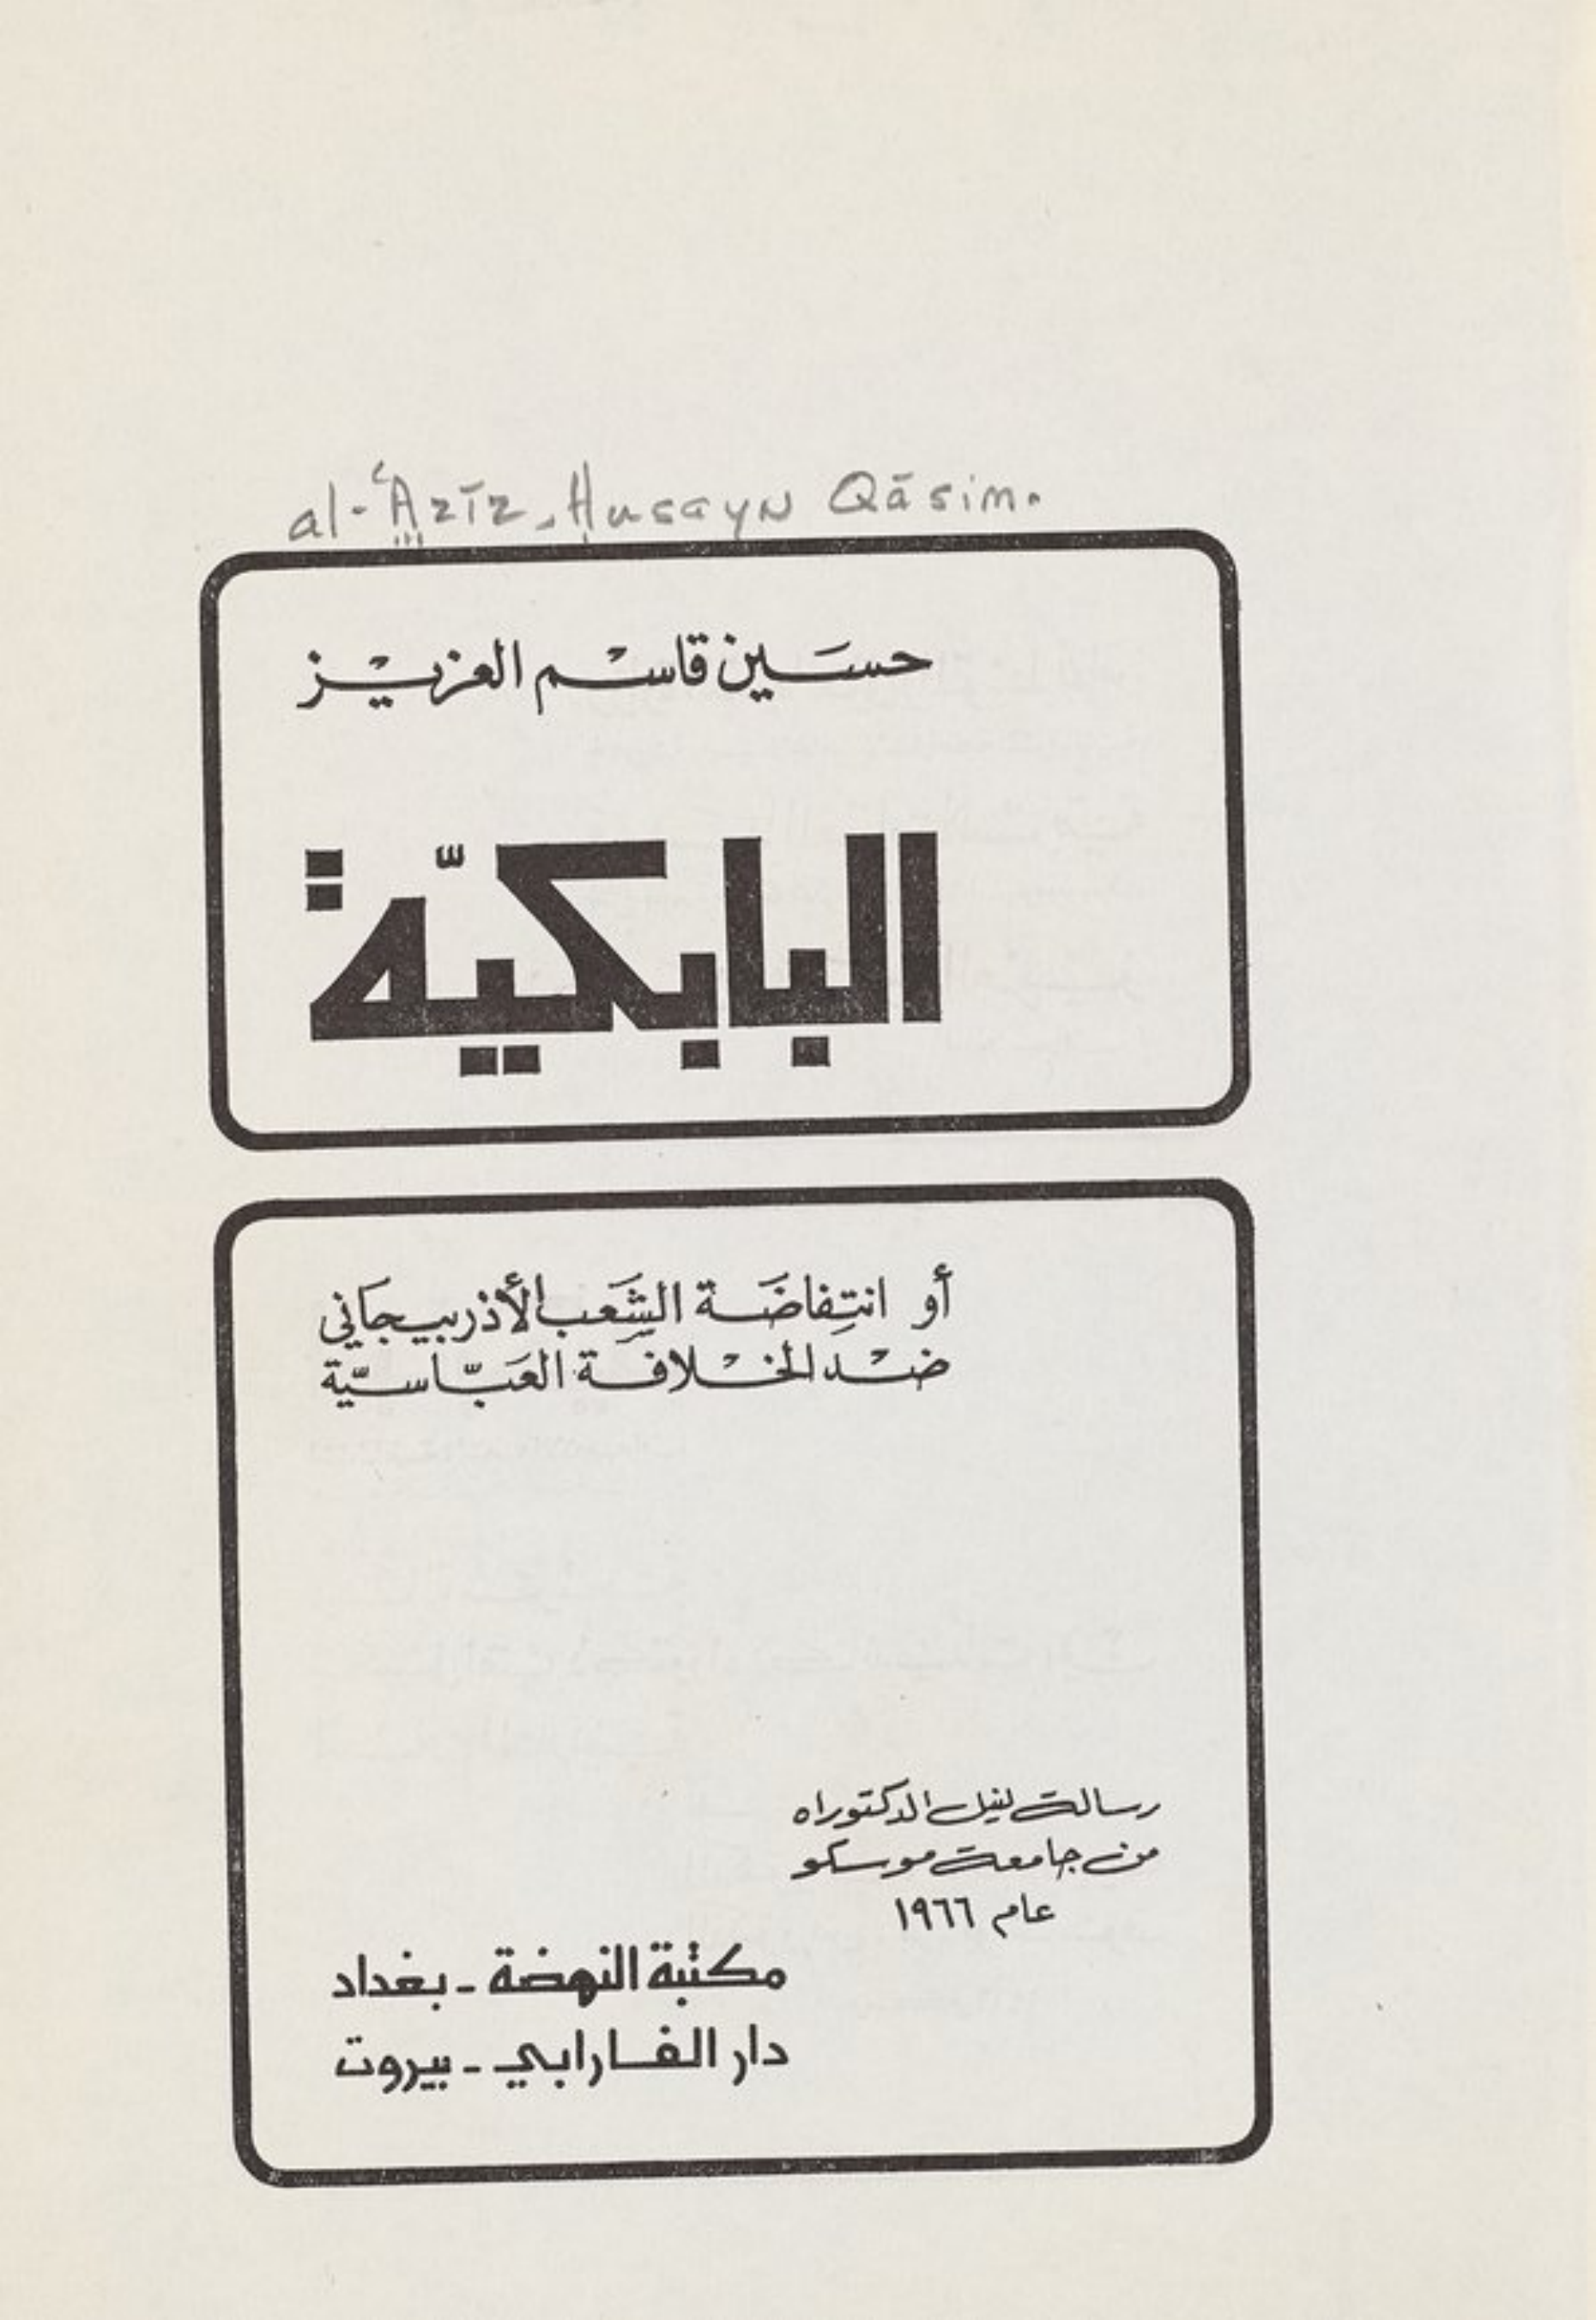 al-ʿAzīz, Ḥusayn Qāsim.
حسَين قاسْم العزيْز
البابكيّة
أو انتِفاضَة الشَعب الأذربيجَاني
ضْد الخْلافة العَبّاسيّة
رسالة لنيل الدكتوراه
من جامعة موسكو
عام ١٩٦٦
مكتبة النهضة - بغداد
دار الفارابي - بيروت